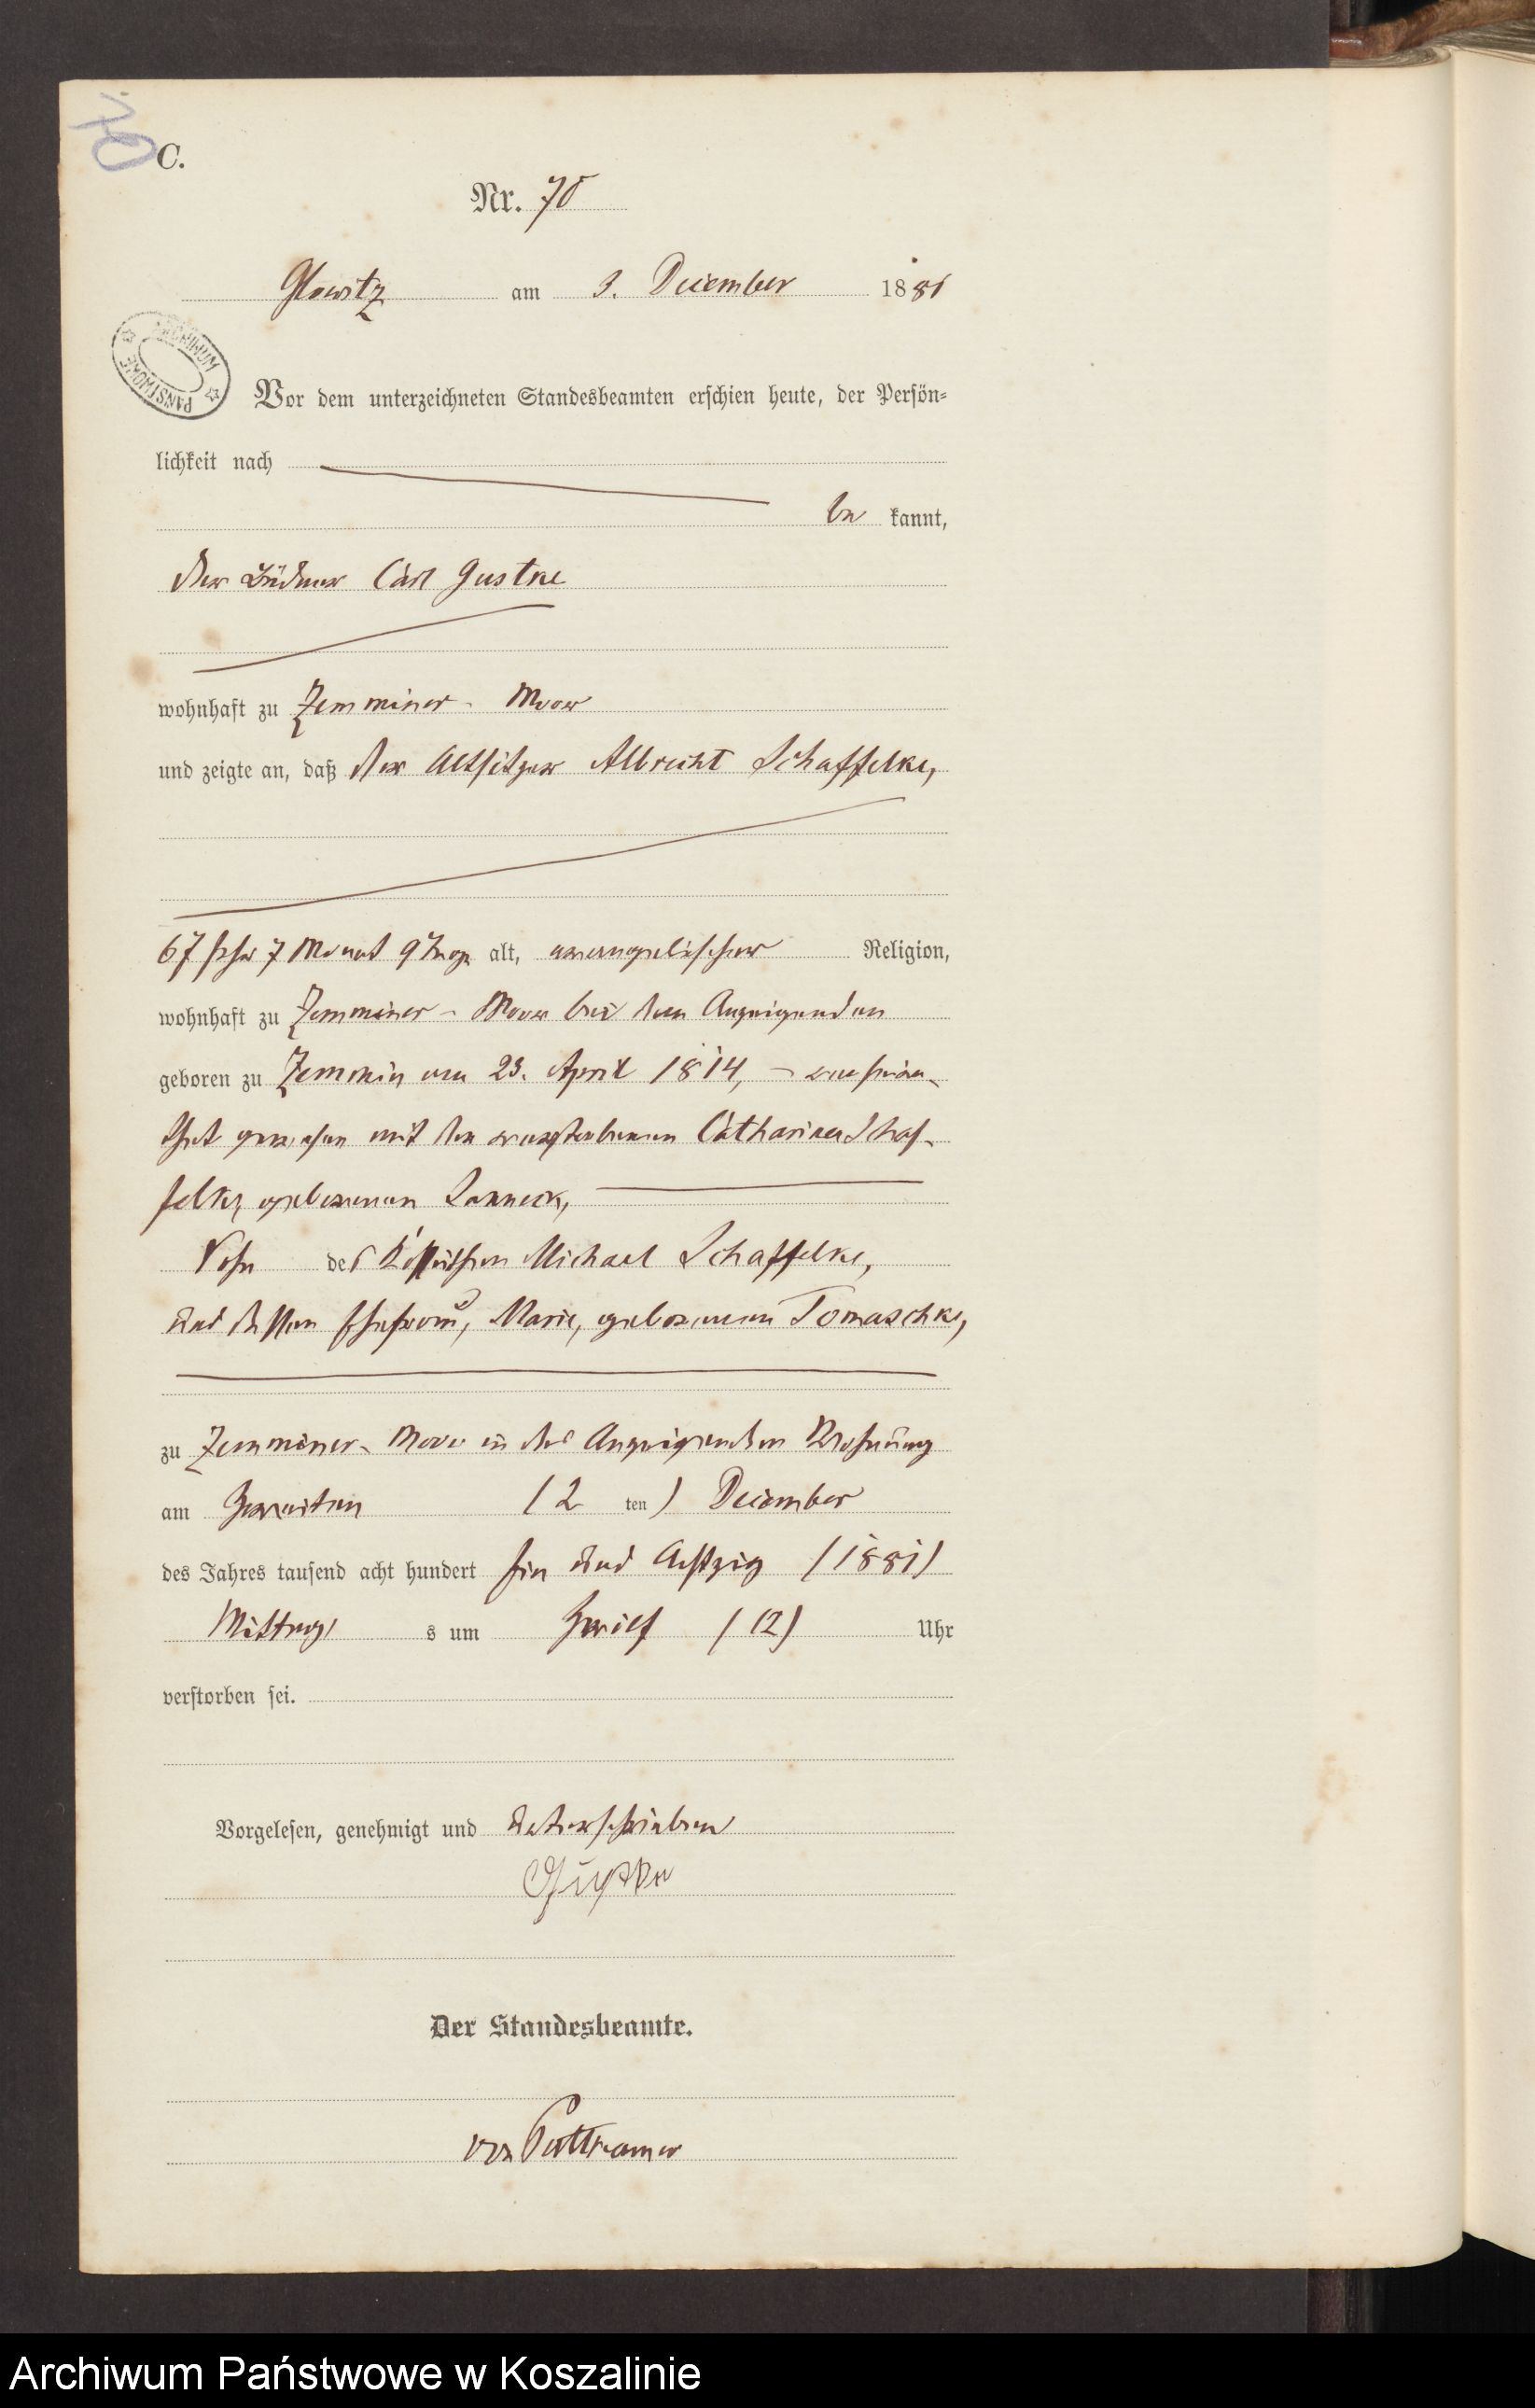 70
C.
Nr. 70
Glowitz am 3. December 1881
ARCHIWUM PAŃSTWOWE
Vor dem unterzeichneten Standesbeamten erschien heute, der Persön-
lichkeit nach
be kannt,
der Büdner Carl Gustke
wohnhaft zu Zemminer - Moor
und zeigte an, daß der Altsitzer Albrecht Schaffelke,
67 Jahr 7 Monat 9 Tage alt, evangelischer Religion,
wohnhaft zu Zemminer - Moor bei dem Anzeigenden
geboren zu Zemmin am 23. April 1814, – verheira-
thet gewesen mit der verstorbenen Catharina Schaf-
felke, geborenen Lanneck,
Sohn des Kossäthen Michael Schaffelke,
und dessen Ehefrau, Marie, geborenen Tomaschke,
zu Zemminer - Moor in des Anzeigenden Wohnung
am Zweiten (2 ten) December
des Jahres tausend acht hundert Ein und Achtzig (1881)
Mittag s um Zwölf (12) Uhr
verstorben sei.
Vorgelesen, genehmigt und unterschrieben
Gustke
Der Standesbeamte.
von Puttkamer
Archiwum Państwowe w Koszalinie